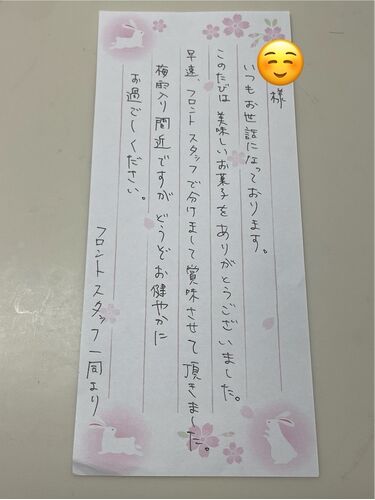 様
いつもお世話になっております。
このたびは美味しいお菓子をありがとうございました。
早速、フロントスタッフで分けまして賞味させて頂きました。
梅雨入り間近ですがどうぞお健やかに
お過ごしください。
フロントスタッフ一同より